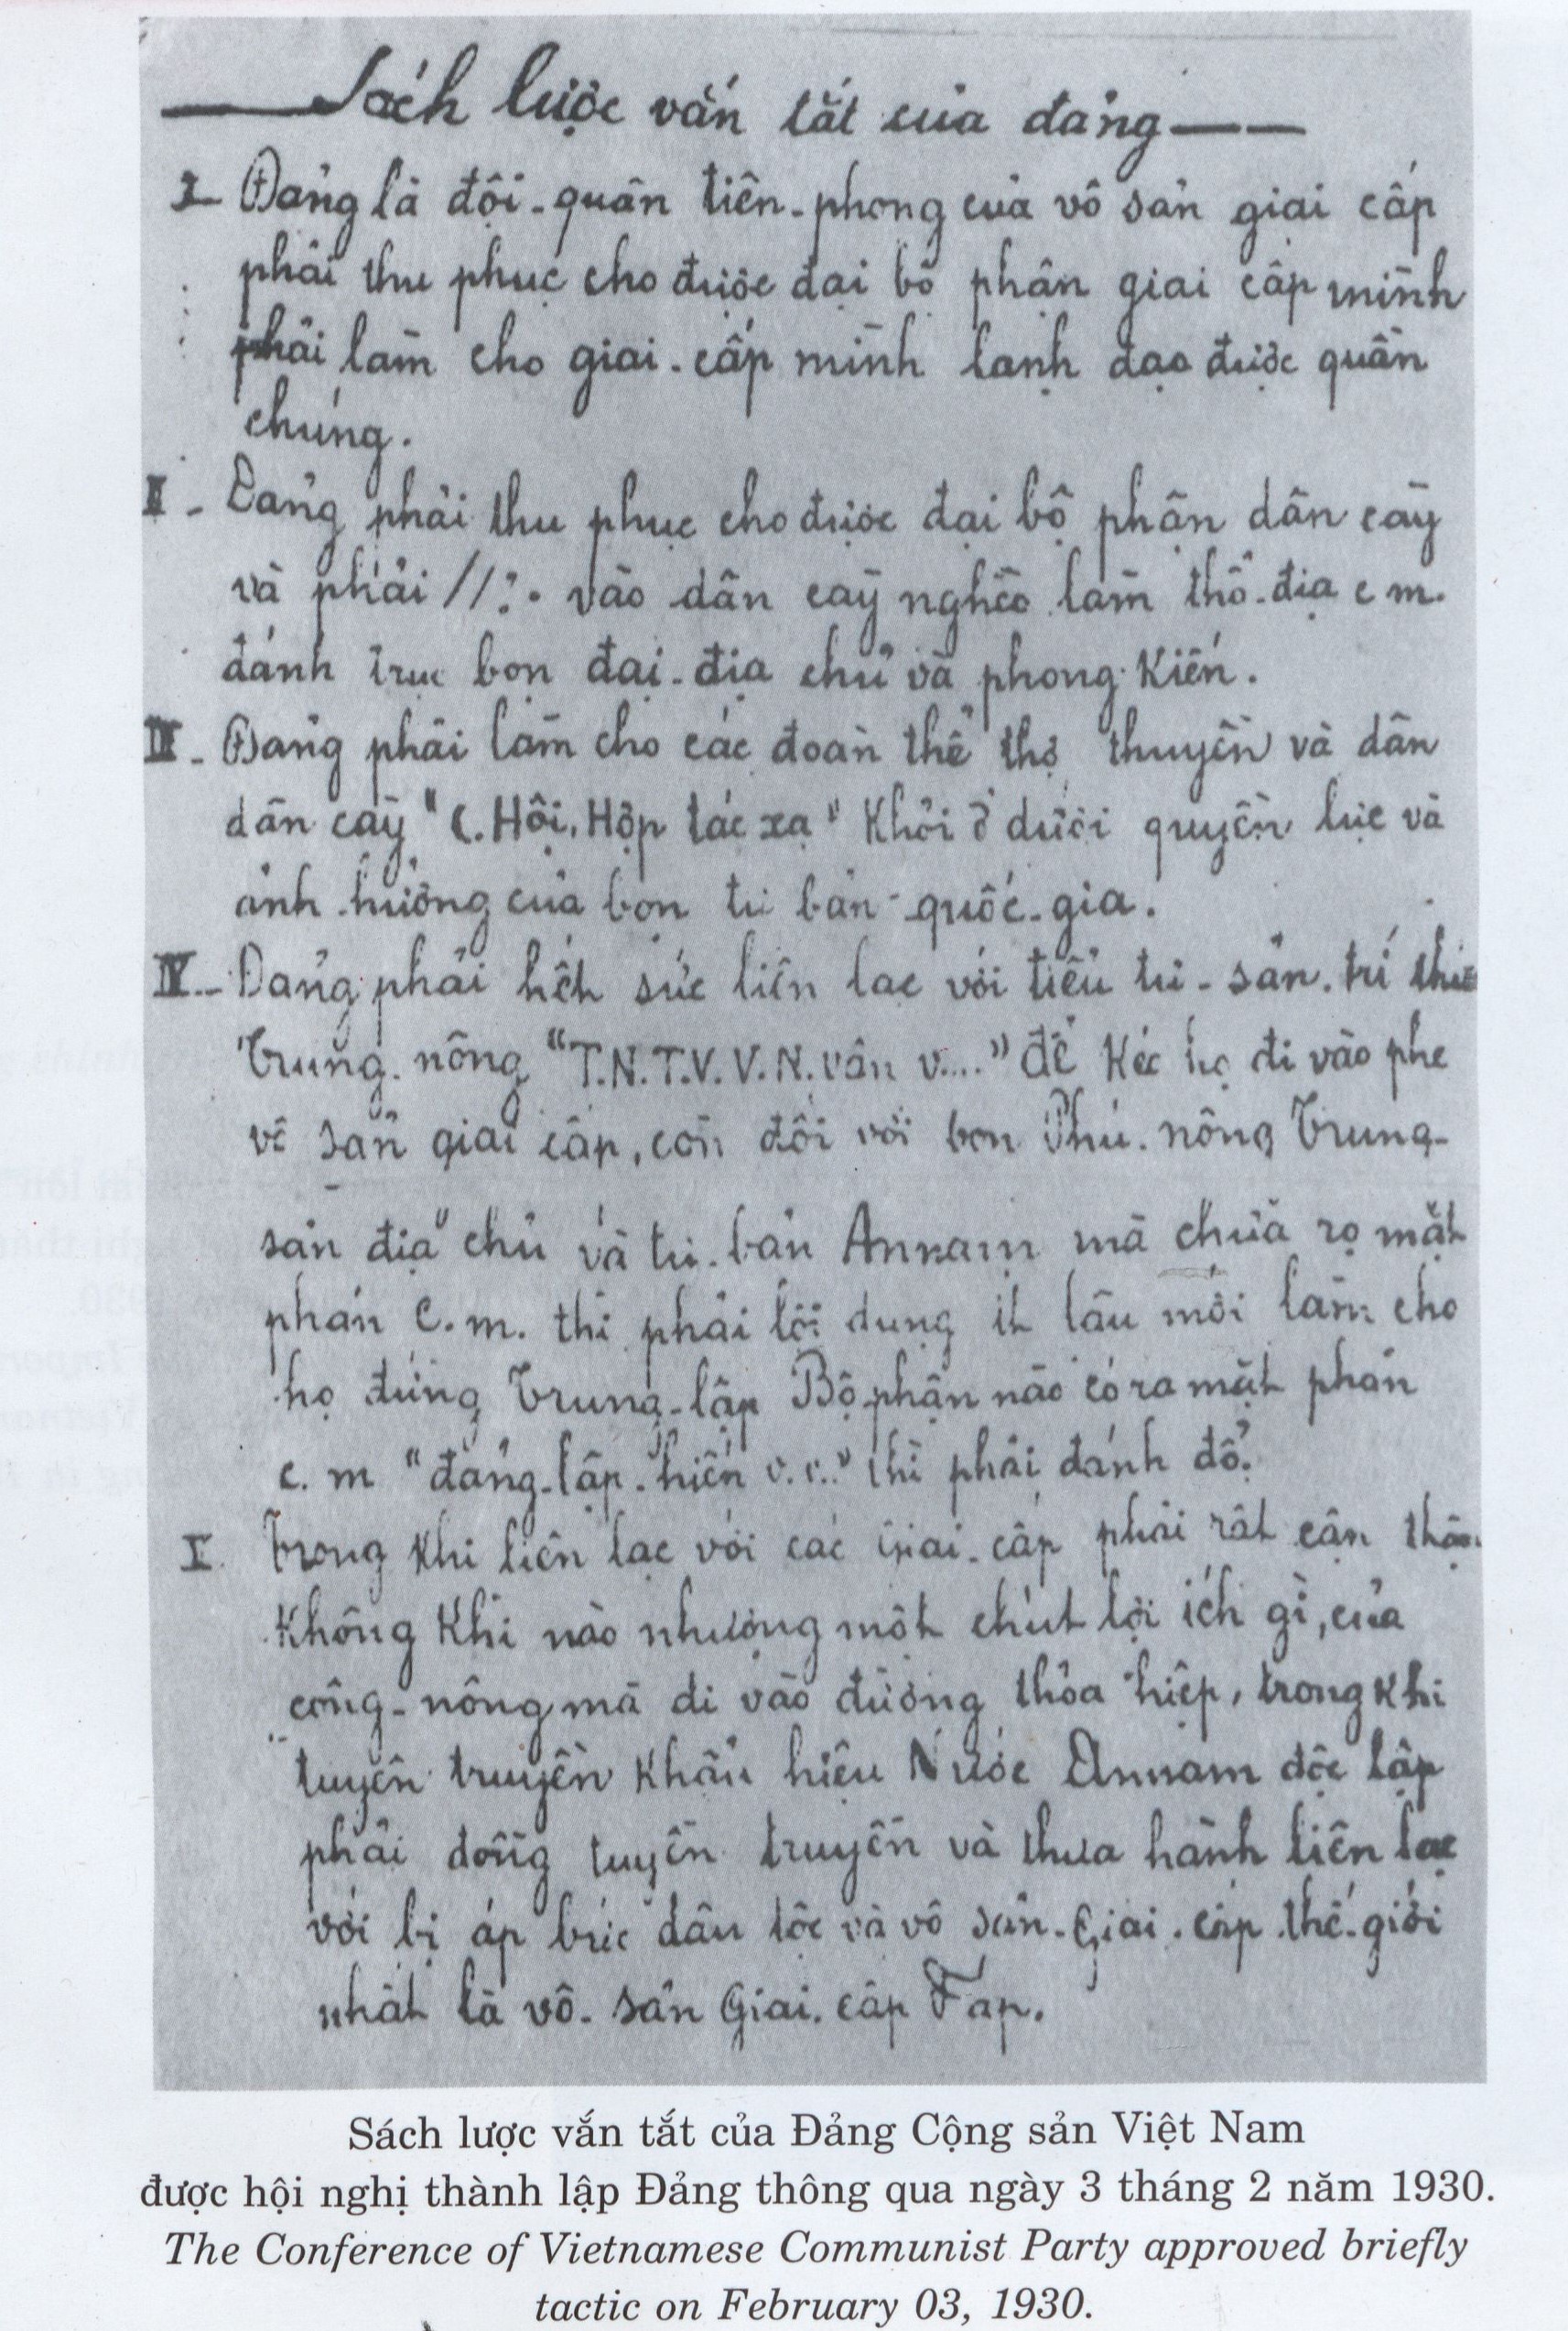 Sách lược vắn tắt của đảng
I- Đảng là đội-quân tiên-phong của vô sản giai cấp
phải thu phục cho được đại bộ phận giai cấp mình
phải làm cho giai-cấp mình lảnh đạo được quần
chúng.
II- Đảng phải thu phục cho được đại bộ phận dân cày
và phải //:. vào dân cày nghèo làm thổ-địa c m.
đánh trục bọn đại-địa chủ và phong-kiến.
III- Đảng phải làm cho các đoàn thể thợ thuyền và dân
dân cày "C.Hội, Hộp tác xạ" khỏi ở dưới quyền lực và
ảnh-hưởng của bọn tư bản-quốc-gia.
IV- Đảng phải hết sức liên lạc với tiểu tư-sản. trí thức
Trung-nông "T.N.T.V.V.N.vân v...." để kéo họ đi vào phe
vô sản giai cấp, còn đối với bọn Phú-nông Trung-
sản địa chủ và tư-bản Annam mà chưa rọ mặt
phản c.m. thì phải lợi dụng ít lâu mới làm cho
họ đứng Trung-lập Bộ phận nào có ra mặt phản
c.m "đảng-lập-hiến v.v.." thì phải đánh đổ.
V. Trong khi liên lạc với các giai-cấp phải rất cận thận
không khi nào nhượng một chút lợi ích gì, của
công-nông mà đi vào đường thỏa hiệp, trong khi
tuyên truyền khẩu hiệu Nước Annam độc lập
phải đồng tuyên truyền và thưa hành liên lạc
với bị áp bức dân tộc và vô sản-giai-cấp thế-giới
nhất là vô-sản Giai-cấp Fáp.
Sách lược vắn tắt của Đảng Cộng sản Việt Nam
được hội nghị thành lập Đảng thông qua ngày 3 tháng 2 năm 1930.
The Conference of Vietnamese Communist Party approved briefly
tactic on February 03, 1930.